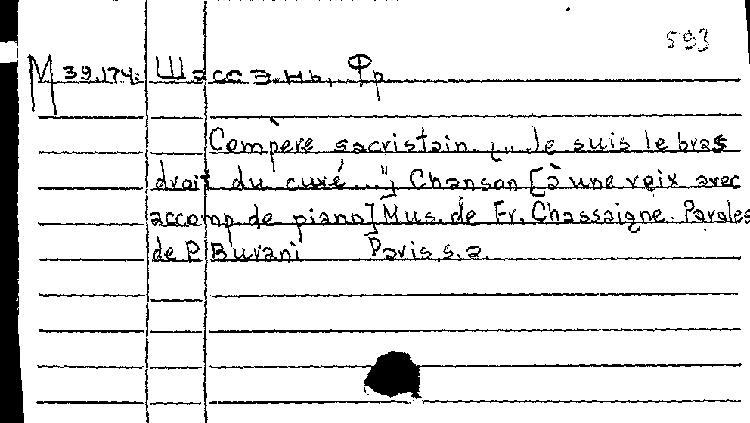 593
М 39.174. Шассэнь, Фр.
Compère sacristain. („Je suis le bras
droit du curé..."). Chanson [à une voix avec
accomp. de piano] Mus. de Fr. Chassaigne. Paroles
de P. Burani Paris, s.a.